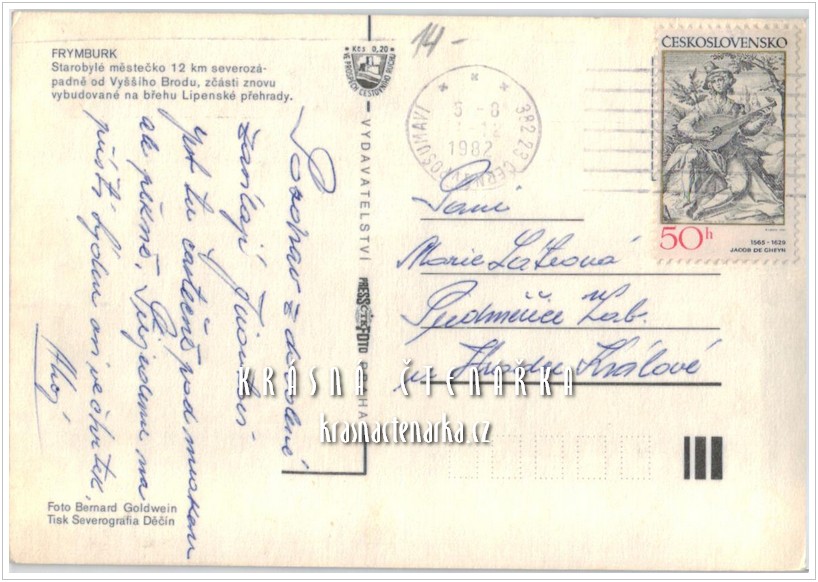 FRYMBURK
Starobylé městečko 12 km severozá-
padně od Vyššího Brodu, zčásti znovu
vybudované na břehu Lipenské přehrady.
Kčs 0,20
14-
ČESKOSLOVENSKO
50h
1565 - 1629
JACOB DE GHEYN
382 23 ČERNÁ V POŠUMAVÍ
1982
Pozdrav z dovolené
zasílají
je tu částečně pod mrakem
ale pěkně. Přijedeme na
příští týden asi ve čtvrtek.
Ahoj
VYDAVATELSTVÍ PRESSFOTO PRAHA
Paní
Marie
Předměřice n. Lab.
Hradec Králové
KRÁSNÁ ČTENÁŘKA
krasnactenarka.cz
Foto Bernard Goldwein
Tisk Severografia Děčín